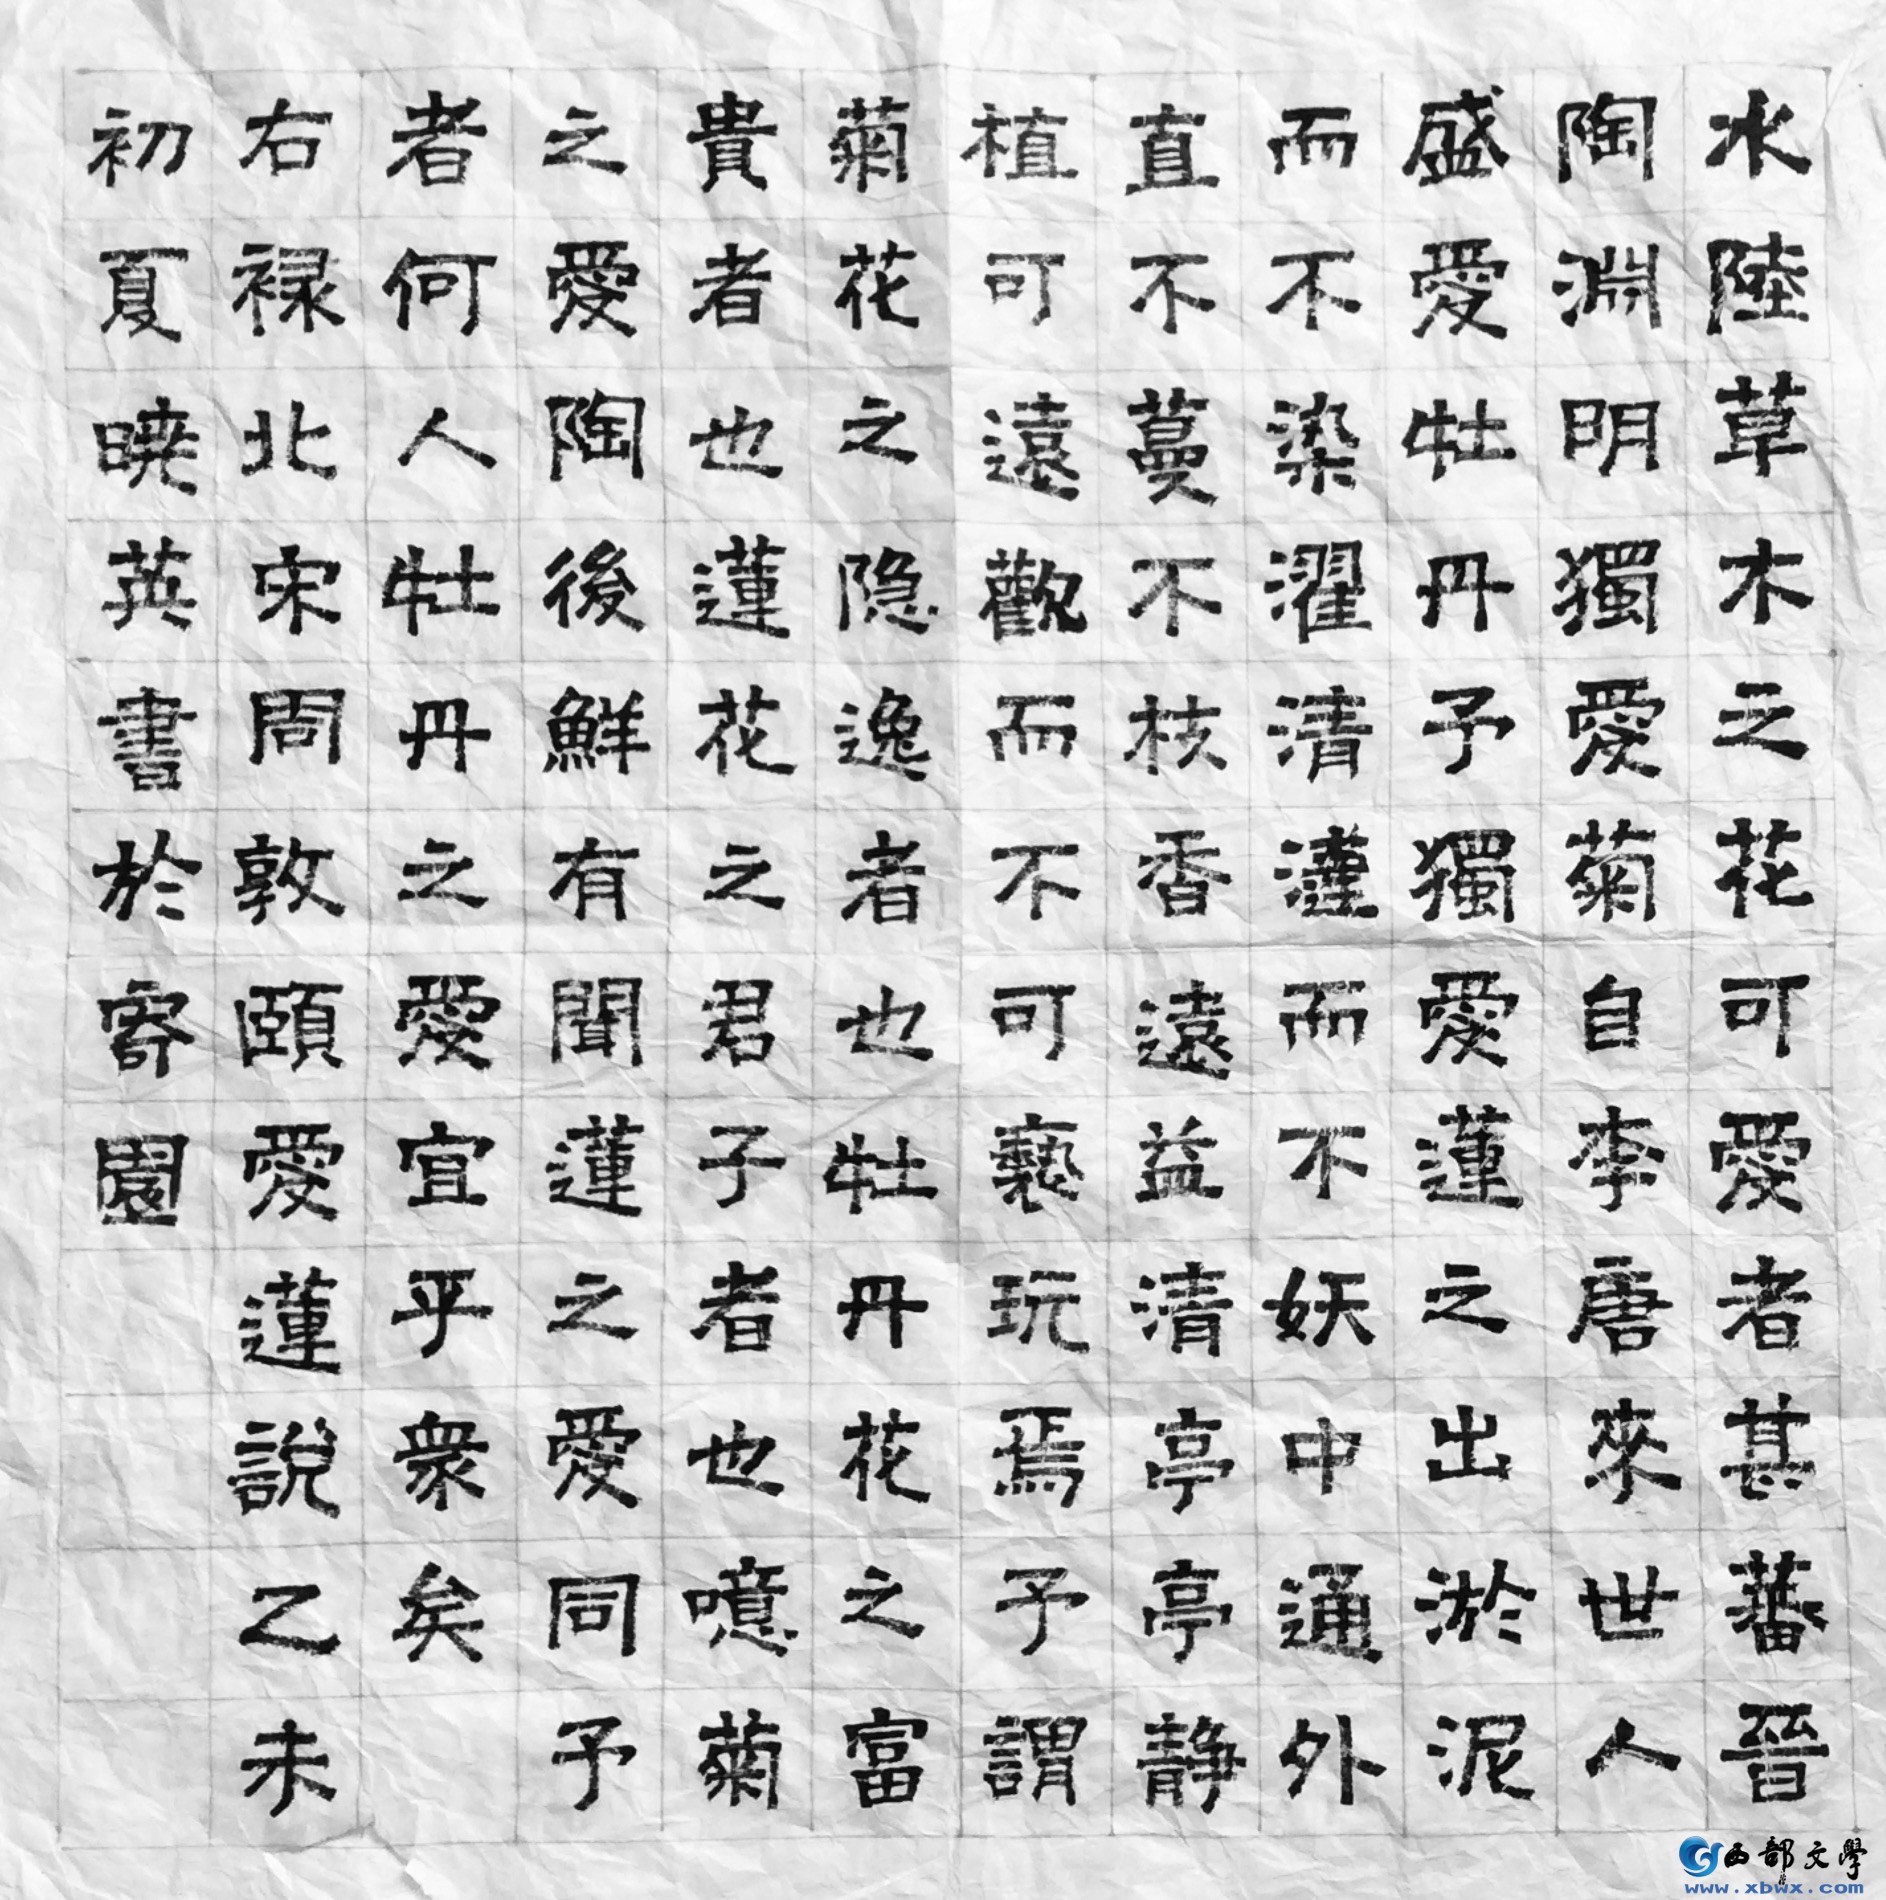 水陸草木之花可愛者甚蕃晉
陶淵明獨愛菊自李唐來世人
盛愛牡丹予獨愛蓮之出淤泥
而不染濯清漣而不妖中通外
直不蔓不枝香遠益清亭亭静
植可遠觀而不可褻玩焉予謂
菊花之隐逸者也牡丹花之富
貴者也蓮花之君子者也噫菊
之愛陶後鮮有聞蓮之愛同予
者何人牡丹之愛宜乎衆矣
右禄北宋周敦頤愛蓮說乙未
初夏暁英書於寄園
西部文學
www.xbwx.com